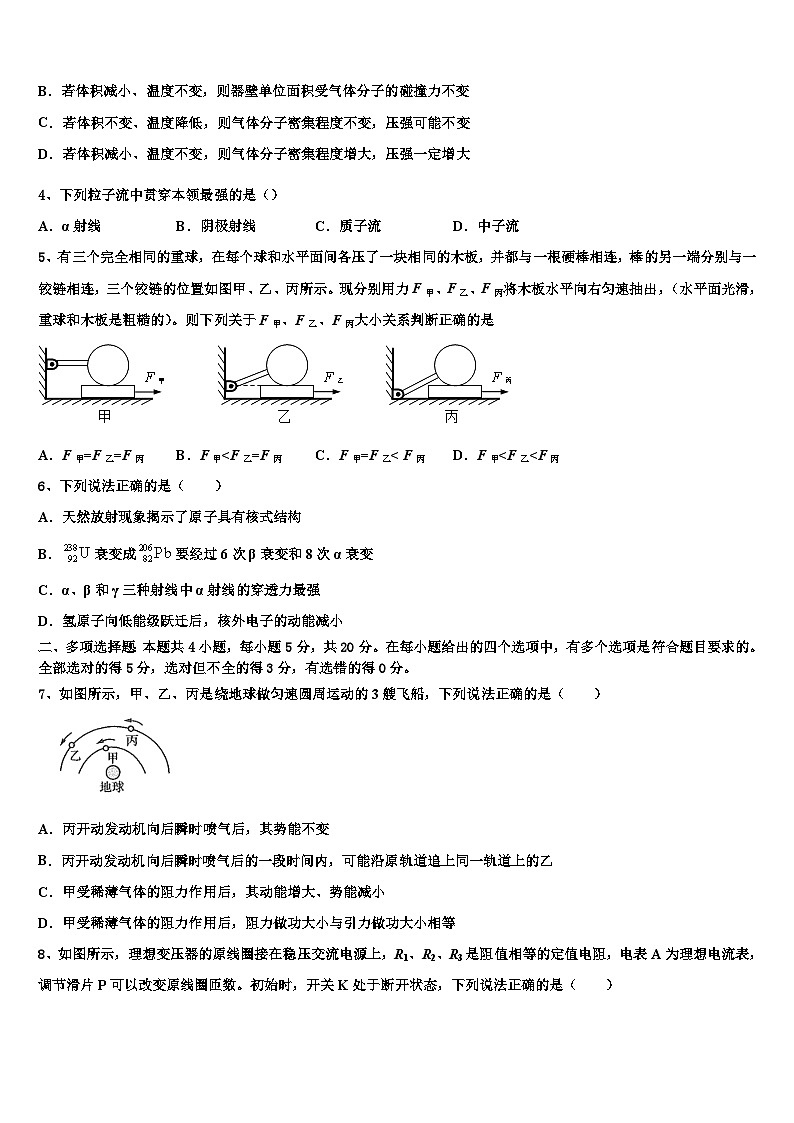 B．若体积减小、温度不变，则器壁单位面积受气体分子的碰撞力不变
C．若体积不变、温度降低，则气体分子密集程度不变，压强可能不变
D．若体积减小、温度不变，则气体分子密集程度增大，压强一定增大
4、下列粒子流中贯穿本领最强的是()
A．α 射线 B．阴极射线 C．质子流 D．中子流
5、有三个完全相同的重球，在每个球和水平面间各压了一块相同的木板，并都与一根硬棒相连，棒的另一端分别与一
铰链相连，三个铰链的位置如图甲、乙、丙所示。现分别用力 F 甲、F 乙、F 丙将木板水平向右匀速抽出，(水平面光滑，
重球和木板是粗糙的)。则下列关于 F 甲、F 乙、F 丙大小关系判断正确的是
F 甲 F 乙 F 丙
甲 乙 丙
A．F 甲=F 乙=F 丙 B．F 甲<F 乙=F 丙 C．F 甲=F 乙< F 丙 D．F 甲<F 乙<F 丙
6、下列说法正确的是（　　）
A．天然放射现象揭示了原子具有核式结构
B．$^{238}_{92}$U 衰变成 $^{206}_{82}$Pb 要经过 6 次 β 衰变和 8 次 α 衰变
C．α、β 和 γ 三种射线中 α 射线的穿透力最强
D．氢原子向低能级跃迁后，核外电子的动能减小
二、多项选择题：本题共 4 小题，每小题 5 分，共 20 分。在每小题给出的四个选项中，有多个选项是符合题目要求的。
全部选对的得 5 分，选对但不全的得 3 分，有选错的得 0 分。
7、如图所示，甲、乙、丙是绕地球做匀速圆周运动的 3 艘飞船，下列说法正确的是（　　）
丙
乙 甲
地球
A．丙开动发动机向后瞬时喷气后，其势能不变
B．丙开动发动机向后瞬时喷气后的一段时间内，可能沿原轨道追上同一轨道上的乙
C．甲受稀薄气体的阻力作用后，其动能增大、势能减小
D．甲受稀薄气体的阻力作用后，阻力做功大小与引力做功大小相等
8、如图所示，理想变压器的原线圈接在稳压交流电源上，R₁、R₂、R₃ 是阻值相等的定值电阻，电表 A 为理想电流表，
调节滑片 P 可以改变原线圈匝数。初始时，开关 K 处于断开状态，下列说法正确的是（　　）